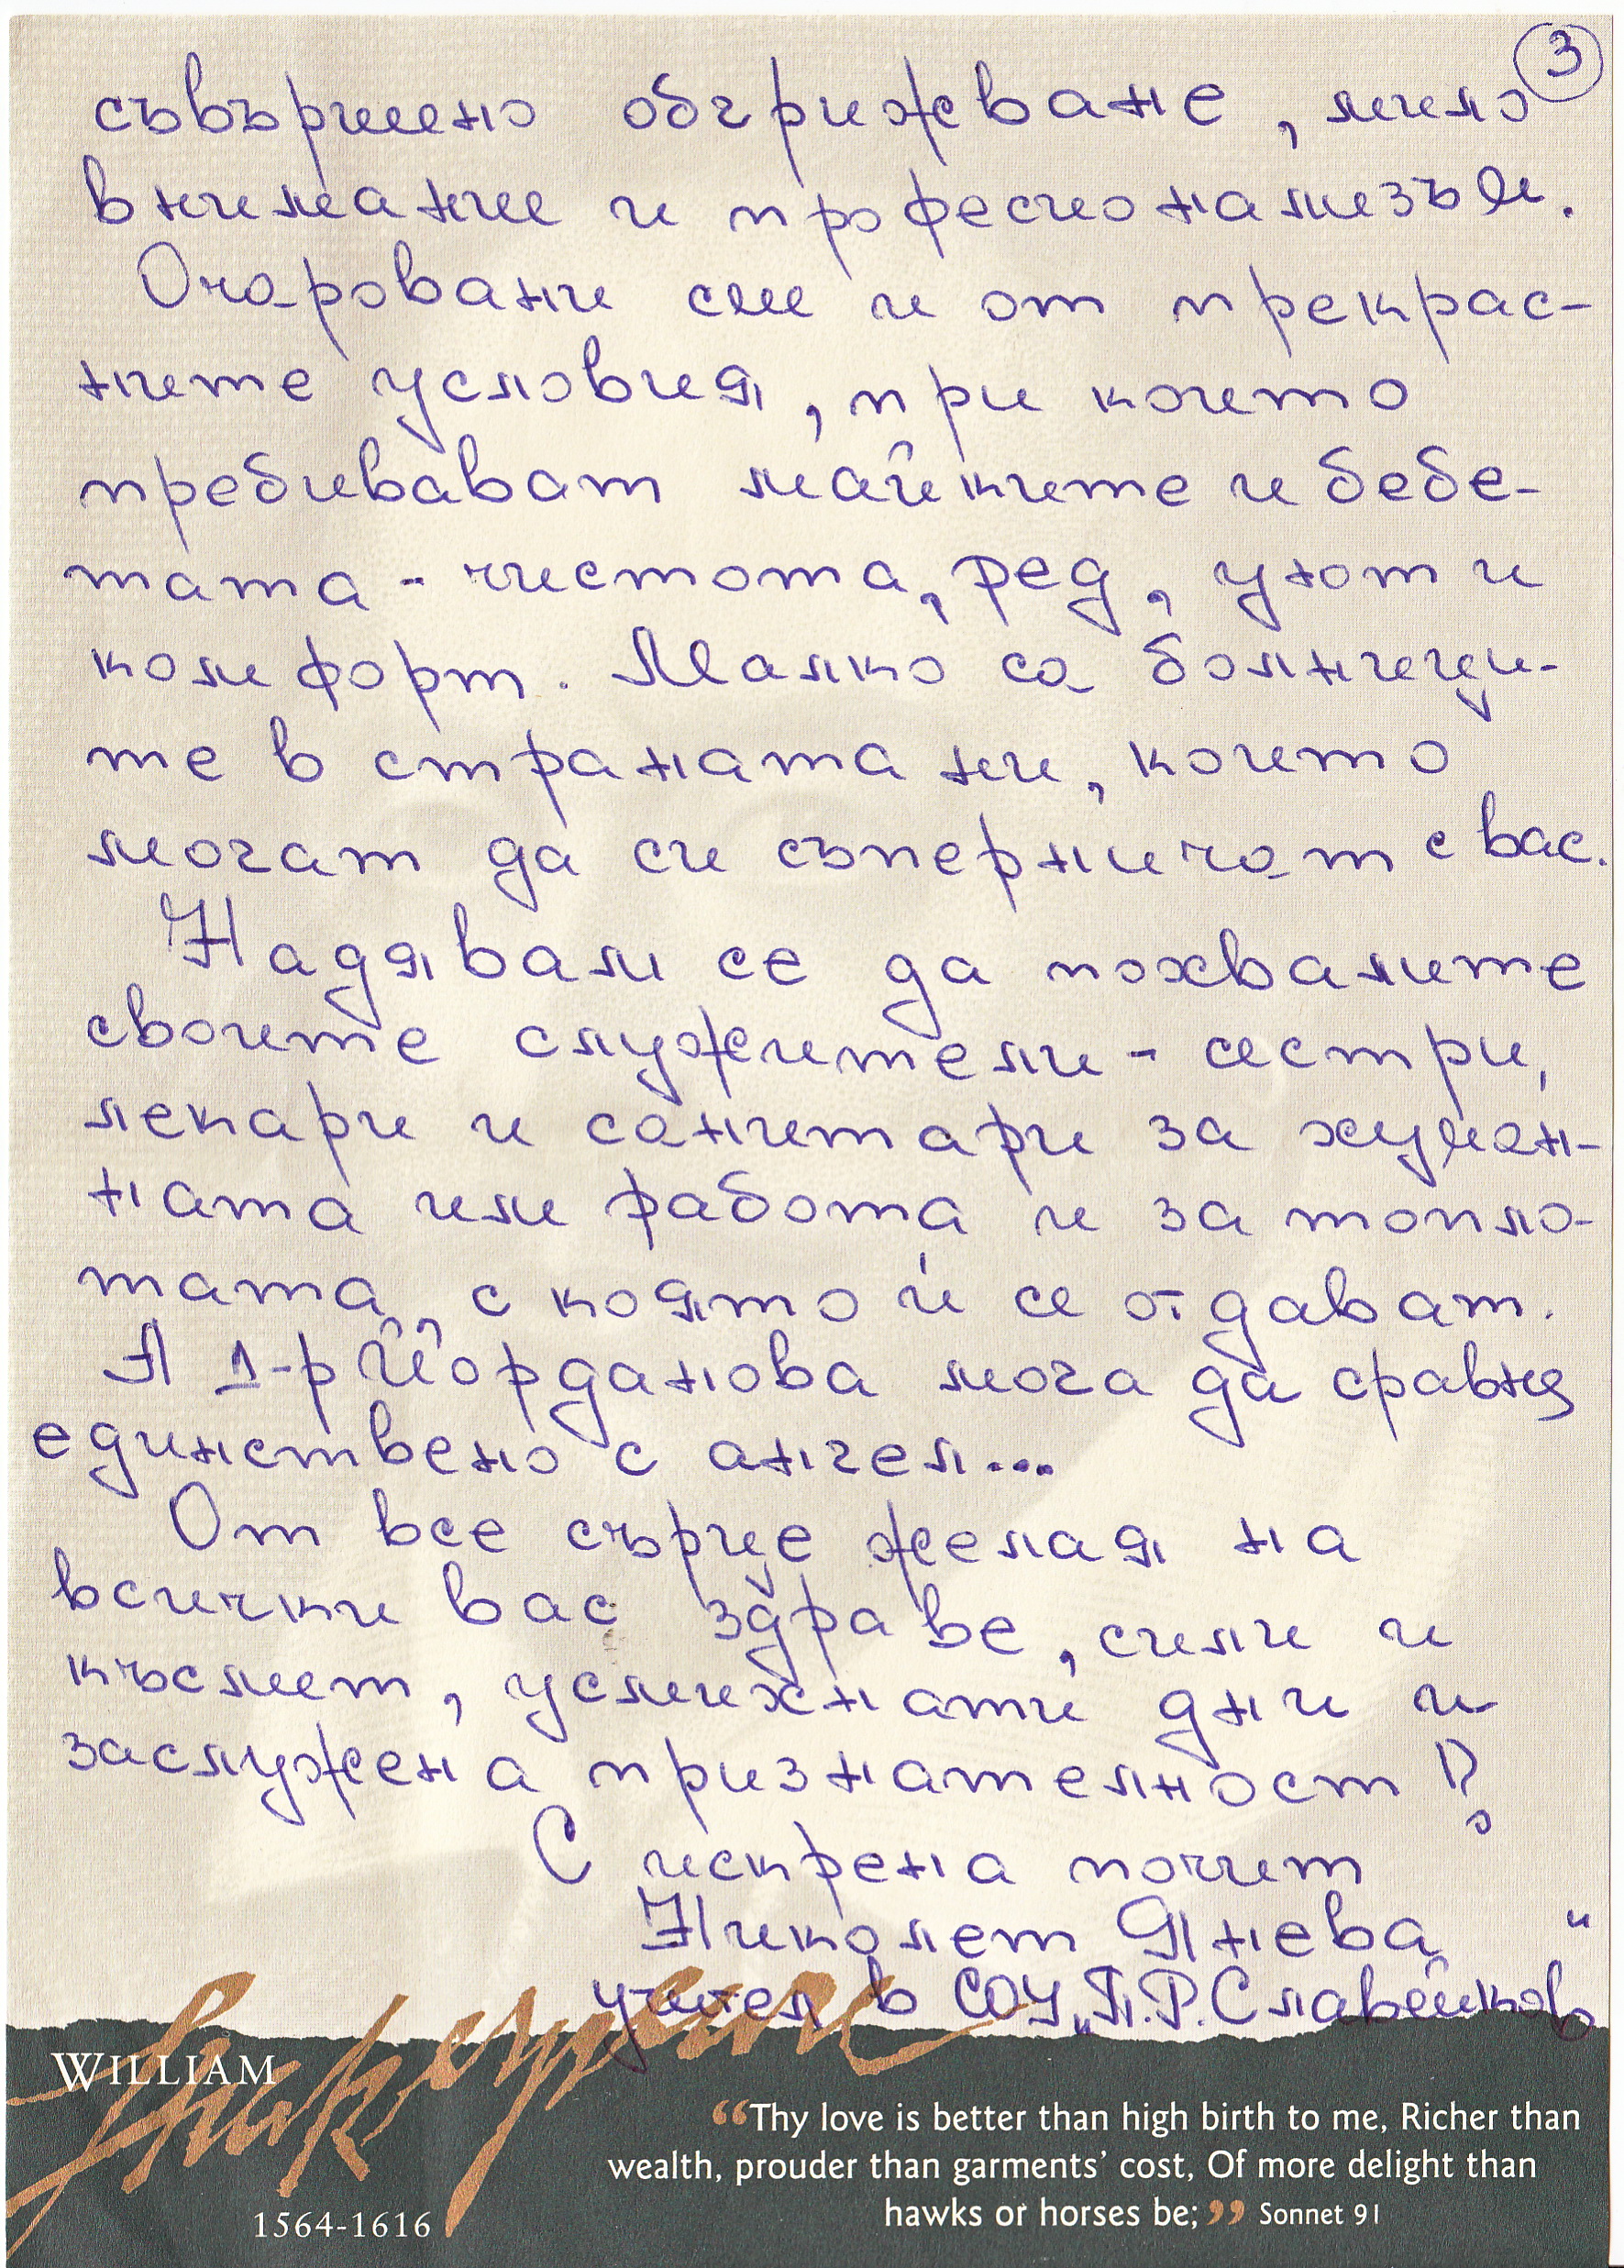 3
съвършено обгрижване, мило
внимание и професионализъм.
Очаровани сме и от прекрас-
ните условия, при които
пребивават майките и бебе-
тата - чистота, ред, уют и
комфорт. Малко са болници-
те в страната ни, които
могат да си съперничат с вас.
Надявам се да похвалите
своите служители - сестри,
лекари и санитари за хуман-
ната им работа и за топло-
тата, с която ѝ се отдават.
А д-р Йорданова мога да сравня
единствено с ангел...
От все сърце желая на
всички вас здраве, сили и
късмет, усмихнати дни и
заслужена признателност!
С искрена почит
Николет Янева
учител в СОУ „П.Р.Славейков“
WILLIAM
Shakespeare
1564-1616
“Thy love is better than high birth to me, Richer than
wealth, prouder than garments' cost, Of more delight than
hawks or horses be;” Sonnet 91